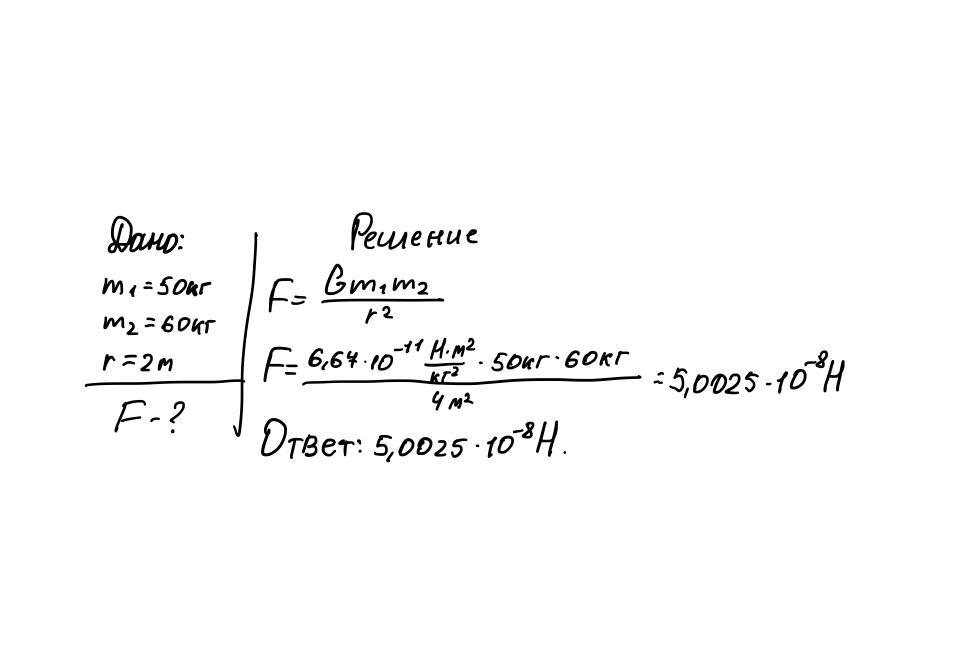 Дано:
m₁ = 50кг
m₂ = 60кг
r = 2м
F - ?
Решение
F = Gm₁m₂ / r²
F = 6,67 · 10⁻¹¹ Н·м²/кг² · 50кг · 60кг / 4м² = 5,0025 · 10⁻⁸ Н
Ответ: 5,0025 · 10⁻⁸ Н.